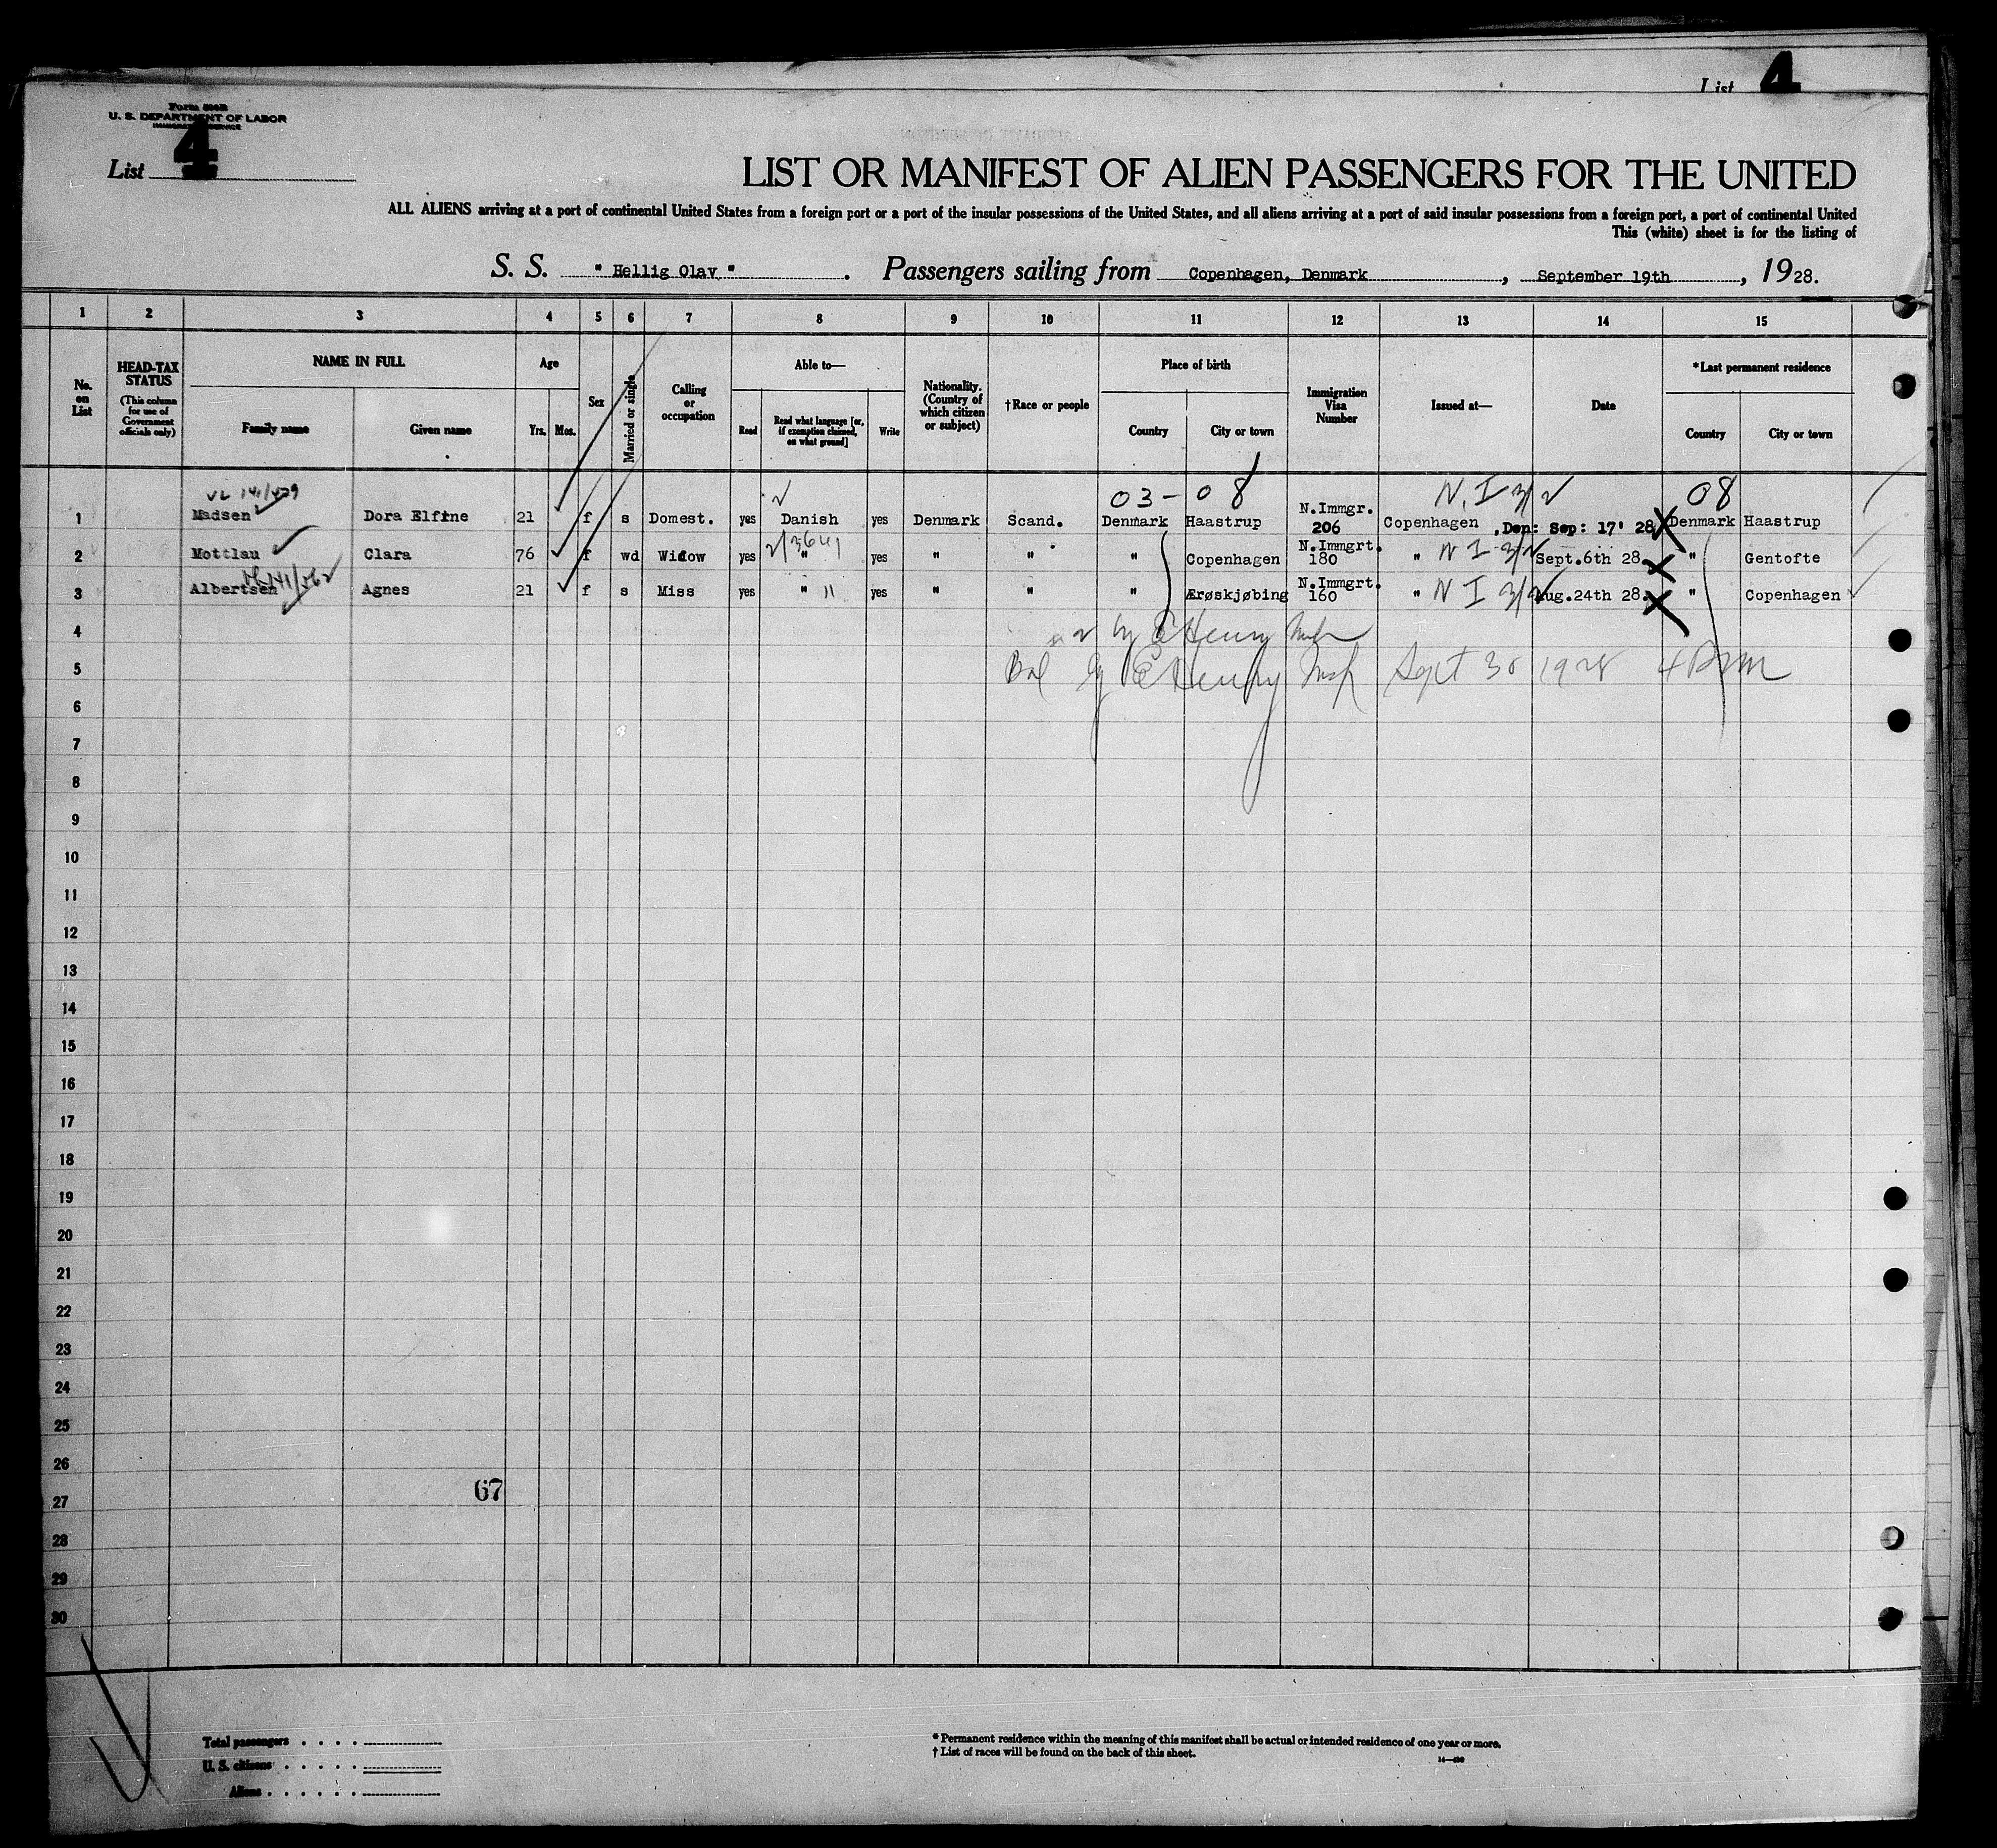 List 4
Form 500B
U. S. DEPARTMENT OF LABOR
IMMIGRATION SERVICE
List 4
LIST OR MANIFEST OF ALIEN PASSENGERS FOR THE UNITED
ALL ALIENS arriving at a port of continental United States from a foreign port or a port of the insular possessions of the United States, and all aliens arriving at a port of said insular possessions from a foreign port, a port of continental United
This (white) sheet is for the listing of
S. S. " Hellig Olav " . Passengers sailing from Copenhagen, Denmark , September 19th , 1928.
1 2 3 4 5 6 7 8 9 10 11 12 13 14 15
No. on List
HEAD-TAX STATUS (This column for use of Government officials only)
NAME IN FULL
Family name
Given name
Age
Yrs.
Mos.
Sex
Married or single
Calling or occupation
Able to—
Read
Read what language [or, if exemption claimed, on what ground]
Write
Nationality. (Country of which citizen or subject)
†Race or people
Place of birth
Country
City or town
Immigration Visa Number
Issued at—
Date
*Last permanent residence
Country
City or town
03 - 08 N.I 3/2 08
1 Madsen Dora Elfine 21 f s Domest. yes Danish yes Denmark Scand. Denmark Haastrup N.Immgr. 206 Copenhagen , Den: Sep: 17' 28 Denmark Haastrup
2 Mottlau Clara 76 f wd Widow yes " yes " " " Copenhagen N.Immgrt. 180 " N I 3/2 Sept.6th 28. " Gentofte
3 Albertsen Agnes 21 f s Miss yes " " yes " " " Ærøskjøbing N.Immgrt. 160 " N I 3/2 Aug.24th 28. " Copenhagen
4 by E Henry
5 E Henry Insp Sept 30 1928 4 PM
6
7
8
9
10
11
12
13
14
15
16
17
18
19
20
21
22
23
24
25
26
67
27
28
29
30
Total passengers . . . .
U. S. citizens . . . . .
Aliens . . . . . .
* Permanent residence within the meaning of this manifest shall be actual or intended residence of one year or more.
† List of races will be found on the back of this sheet.